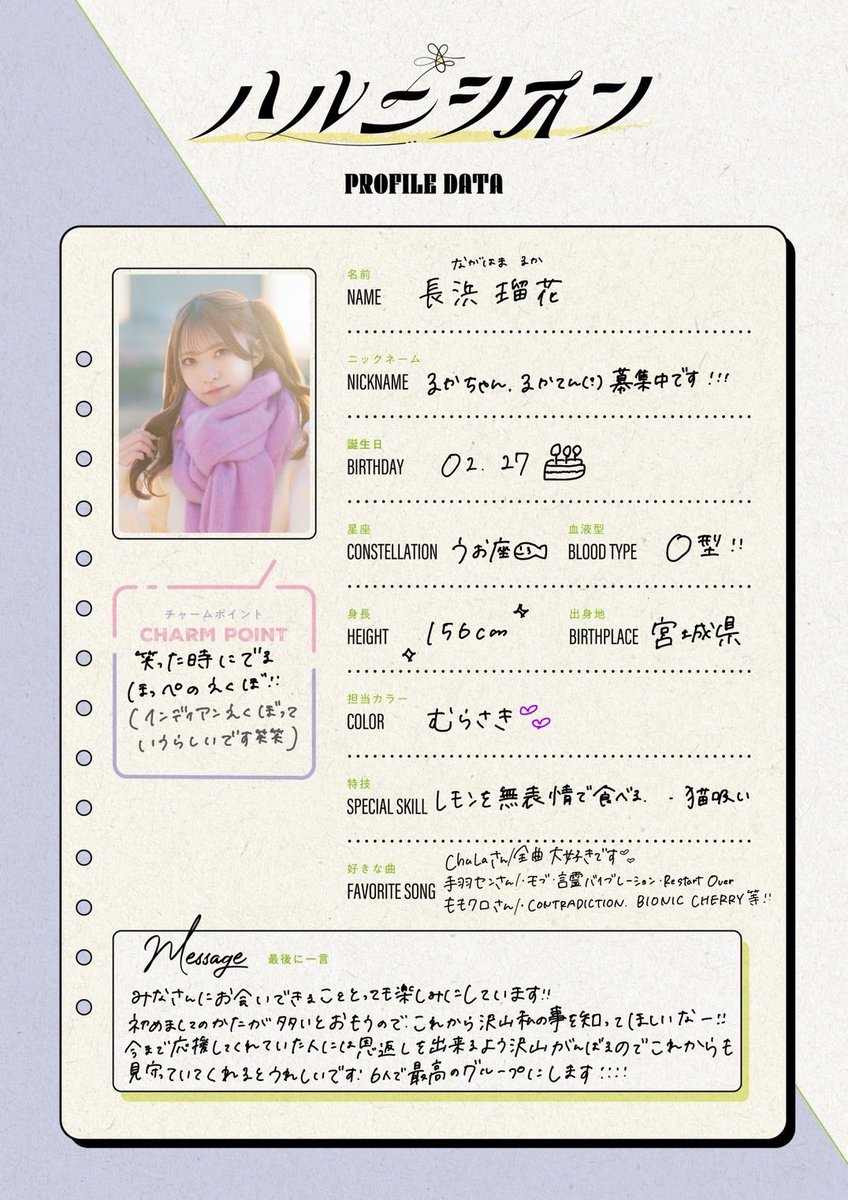 ハルニシオン
PROFILE DATA
名前
NAME
ながはま るか
長浜 瑠花
ニックネーム
NICKNAME
るかちゃん、るかてん(?) 募集中です!!!
誕生日
BIRTHDAY
02.27
星座
CONSTELLATION
うお座
血液型
BLOOD TYPE
O型!!
身長
HEIGHT
156cm
出身地
BIRTHPLACE
宮城県
担当カラー
COLOR
むらさき
特技
SPECIAL SKILL
レモンを無表情で食べる。・猫吸い
好きな曲
FAVORITE SONG
ChuLaさん/全曲大好きです♡
手羽センさん/・モブ・言霊バイブレーション・Restart Over
ももクロさん/・CONTRADICTION. BIONIC CHERRY等!!
チャームポイント
CHARM POINT
笑った時にでる
ほっぺのえくぼ!!
(インディアンえくぼって
いうらしいです笑笑)
Message
最後に一言
みなさんにお会いできることとっても楽しみにしています!!
初めましてのかたが多いとおもうので、これから沢山私の事を知ってほしいなー!!
今まで応援してくれていた人には恩返しを出来るよう沢山がんばるのでこれからも
見守っていてくれるとうれしいです! 6人で最高のグループにします!!!!